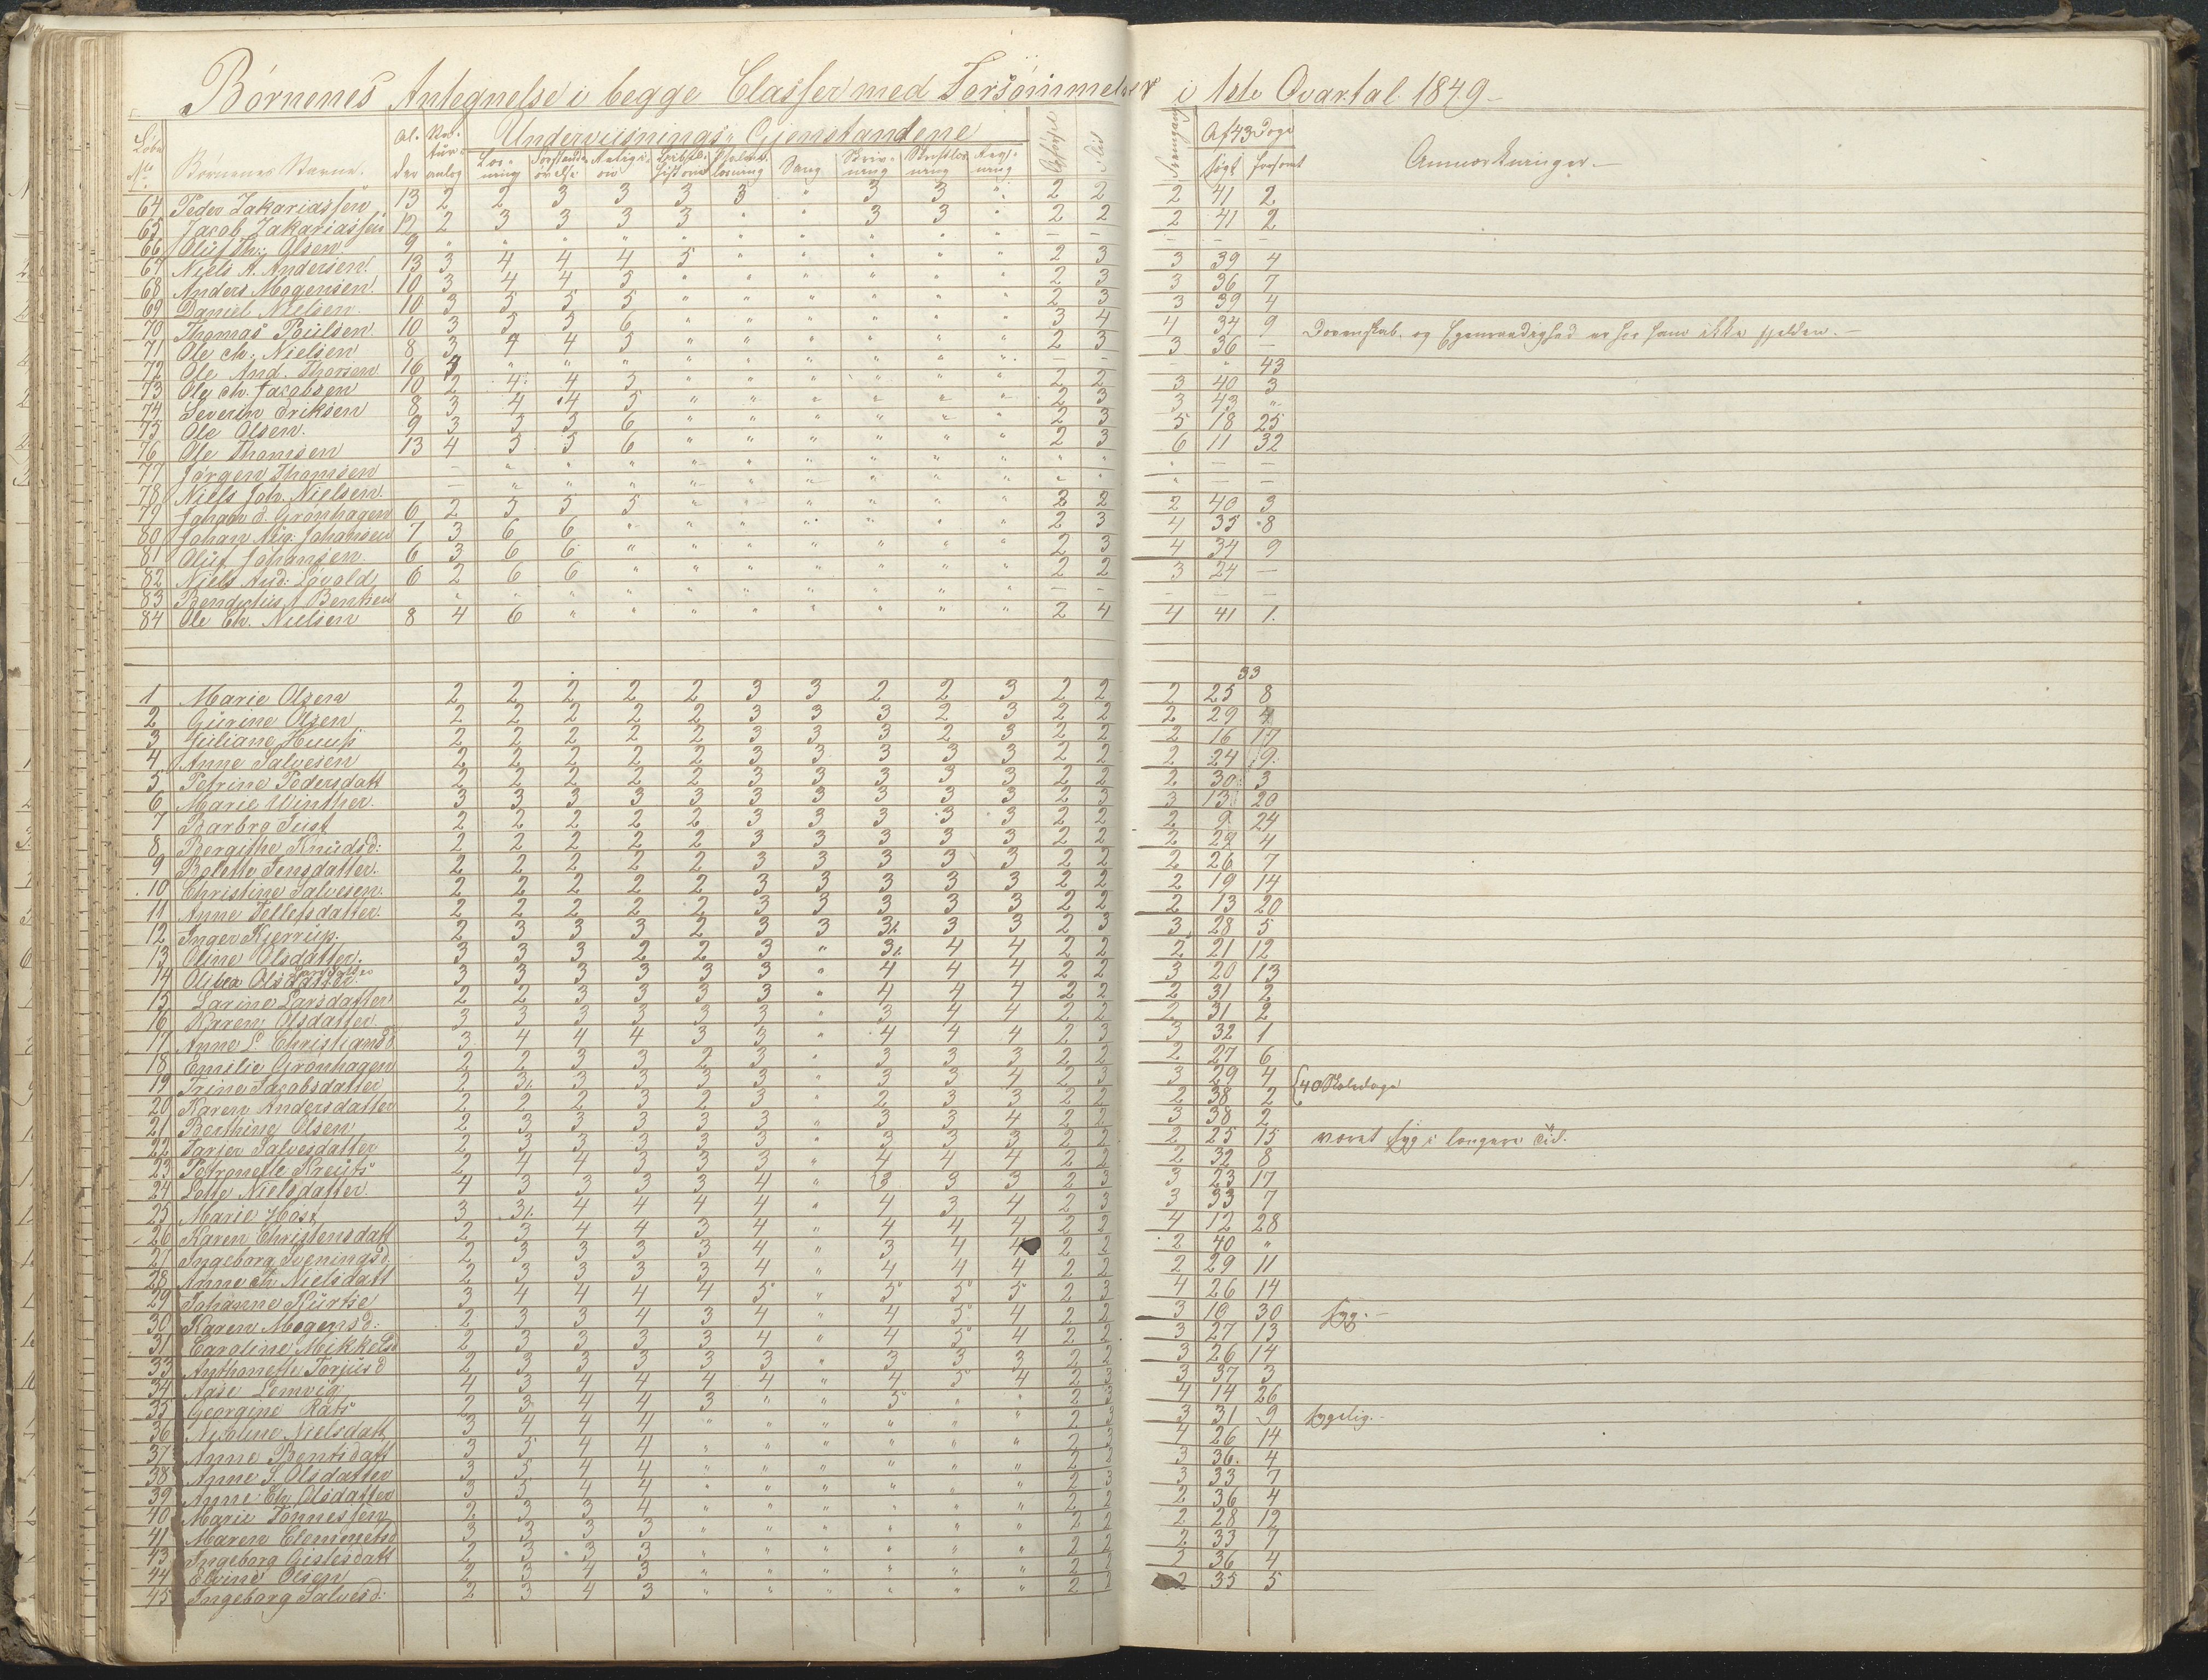 Børnenes Antegnelse i begge Classer med Forsømmelser i 1ste Qvartal 1849 –
Løbe No Børnenes Navne. Al-der Na-tur-anlæg Underviisnings-Gjenstandene Af 43 Dage Anmærkninger. –
Læs-ning Forstands-øvelse Religi-on Sang Skriv-ning Reg-ning Flid Fremgang søgt forsømt
64 Peder Zakariassen 13 2 2 3 3 3 3 " 3 3 " 2 2 2 41 2
65 Jacob Zakariassen 12 2 3 3 3 3 " " 3 3 " 2 2 2 41 2
66 Oluf Th: Olsen 9 " " " " " " " " " " – – – – –
67 Niels A. Andersen. 13 3 4 4 4 5 " " " " " 2 3 3 39 4
68 Anders Mogensen. 10 3 4 4 5 " " " " " " 2 3 3 36 7
69 Daniel Nielsen 10 3 5 5 5 " " " " " " 2 3 3 39 4
70 Thomas Poulsen 10 3 5 5 6 " " " " " " 3 4 4 34 9 Dovenskab og Egenraadighed er hos ham ikke sjelden. –
71 Ole Ch. Nielsen 8 3 4 4 5 " " " " " " 2 3 3 36 –
72 Ole And. Thorsen 16 3 " " " " " " " " " – – – " 43
73 Ole Ch. Jacobsen 10 2 4 4 5 " " " " " " 2 2 3 40 3
74 Severin Eriksen 8 3 4 4 5 " " " " " " 2 3 3 43 "
75 Ole Olsen. 9 3 5 5 6 " " " " " " 2 3 5 18 25
76 Ole Thomsen 13 4 5 5 6 " " " " " " 2 3 6 11 32
77 Jørgen Thomsen – " " " " " " " " " " " " – –
78 Niels Joh. Nielsen. – " " " " " " " " " " " " – –
79 Johan d. Grønhagen 6 2 5 5 5 " " " " " " 2 2 2 40 3
80 Johan Aug: Johansen 7 3 6 6 " " " " " " " 2 3 4 35 8
81 Oluf Johansen 6 3 6 6 " " " " " " " 2 3 4 34 9
82 Niels And: Løvold 6 2 6 6 " " " " " " " 2 2 3 24 –
83 Bendictus J Bentsen " " " " " " " " " " – – – – –
84 Ole Ch. Nielsen 8 4 6 " " " " " " " " 2 4 4 41 1.
33
1 Marie Olsen 2 2 2 2 2 3 3 2 2 3 2 2 2 25 8
2 Gurine Olsen 2 2 2 2 2 3 3 3 2 3 2 2 2 29 4
3 Juliane Huus 2 2 2 2 2 3 3 3 2 3 2 2 2 16 17
4 Anne Salvesen 2 2 2 2 2 3 3 3 3 3 2 2 2 24 9
5 Petrine Pedersdatt 2 2 2 2 2 3 3 3 3 3 2 2 2 30 3
6 Marie Winther. 3 3 3 3 3 3 3 3 3 3 2 3 3 13 20
7 Barbro Just 2 2 2 2 2 3 3 3 3 3 2 2 2 9 24
8 Bergithe Knudsd: 2 2 2 2 2 3 3 3 3 3 2 2 2 29 4
9 Bolette Jensdatter. 2 2 2 2 2 3 3 3 3 3 2 2 2 26 7
10 Christine Salvesen. 2 2 2 2 2 3 3 3 3 3 2 2 2 19 14
11 Anne Tellefsdatter. 2 2 2 2 2 3 3 3 3 3 2 2 2 13 20
12 Inger Kjerrup. 2 3 3 3 2 3 3 3 3 3 2 3 3 28 5
13 Oline Olsdatter. 3 3 3 2 2 3 " 3 4 4 2 2 2 21 12
14 Olivea Olsdatter. 3 3 3 3 3 3 " 4 4 4 2 2 3 20 13
15 Larine Larsdatter 2 2 3 3 3 3 " 4 4 4 2 2 2 31 2
16 Karen Olsdatter 3 3 3 3 3 3 " 3 4 4 2 2 2 31 2
17 Anne L. Christiansd 3 4 4 4 3 3 " 4 4 4 2 3 3 32 1
18 Emilie Grønhagen 2 2 3 3 2 3 " 3 3 3 2 2 2 27 6
19 Trine Jacobsdatter 2 3 3 3 3 3 " 3 3 4 2 3 3 29 4
20 Karen Andersdatter 2 2 2 3 2 3 " 2 3 3 2 2 2 38 2 {40 Skoledage
21 Berthine Olsen 2 3 3 3 3 3 " 3 3 4 2 2 3 38 2
22 Tarjer Salvesdatter 2 3 3 3 3 3 " 3 3 3 2 2 2 25 15 været syg i længere Tid.
23 Petronelle Kreuts 2 4 4 3 3 3 " 4 4 4 2 2 2 32 8
24 Lotte Nielsdatter. 4 3 3 3 3 4 " 3 3 3 2 3 3 23 17
25 Marie Høst 3 3 4 4 4 4 " 4 3 4 2 3 3 33 7
26 Karen Christensdatt 2 3 4 4 3 4 " 4 4 4 2 2 4 12 28
27 Ingeborg Sveningsd. 2 3 3 3 3 4 " 3 4 4 2 2 2 40 "
28 Anne Ch. Nielsdatt 2 3 3 3 3 4 " 4 4 4 2 2 2 29 11
29 Johanne Kurtse 3 4 4 4 4 5 " 5 5 5 2 3 4 26 14
30 Karen Mogensd: 2 3 3 4 3 4 " 4 5 4 2 2 3 10 30 syg. –
31 Caroline Mikkelsd 2 3 3 3 3 4 " 4 5 4 2 2 3 27 13
33 Anthonette Torjusd 2 3 3 3 3 3 " 3 3 3 2 2 3 26 14
34 Aase Lemvig 4 3 4 4 4 4 " 4 5 4 2 3 3 37 3
35 Georgine Rats 2 3 4 4 3 " " 5 " " 2 3 4 14 26
36 Nicoline Nielsdatt 3 4 4 4 " " " " " " 2 3 3 31 9 sygelig. –
37 Anne Bentsdatt 3 5 4 4 " " " " " " 2 3 4 26 14
38 Anne S. Olsdatter 3 5 4 4 " " " " " " 2 2 3 36 4
39 Anne Ch. Olsdatter 3 5 4 4 " " " " " " 2 3 3 33 7
40 Marie Tønnessen 2 3 3 4 " " " " " " 2 2 2 36 4
41 Maren Clemmetsd 3 3 3 3 " " " " " " 2 2 2 28 12
43 Ingeborg Gislesdatt 2 3 3 3 " " " " " " 2 2 2 33 7
44 Elvine Olsen 2 3 4 3 " " " " " " 2 2 2 36 4
45 Ingeborg Salvesd: 2 3 4 3 " " " " " " 2 2 2 35 5